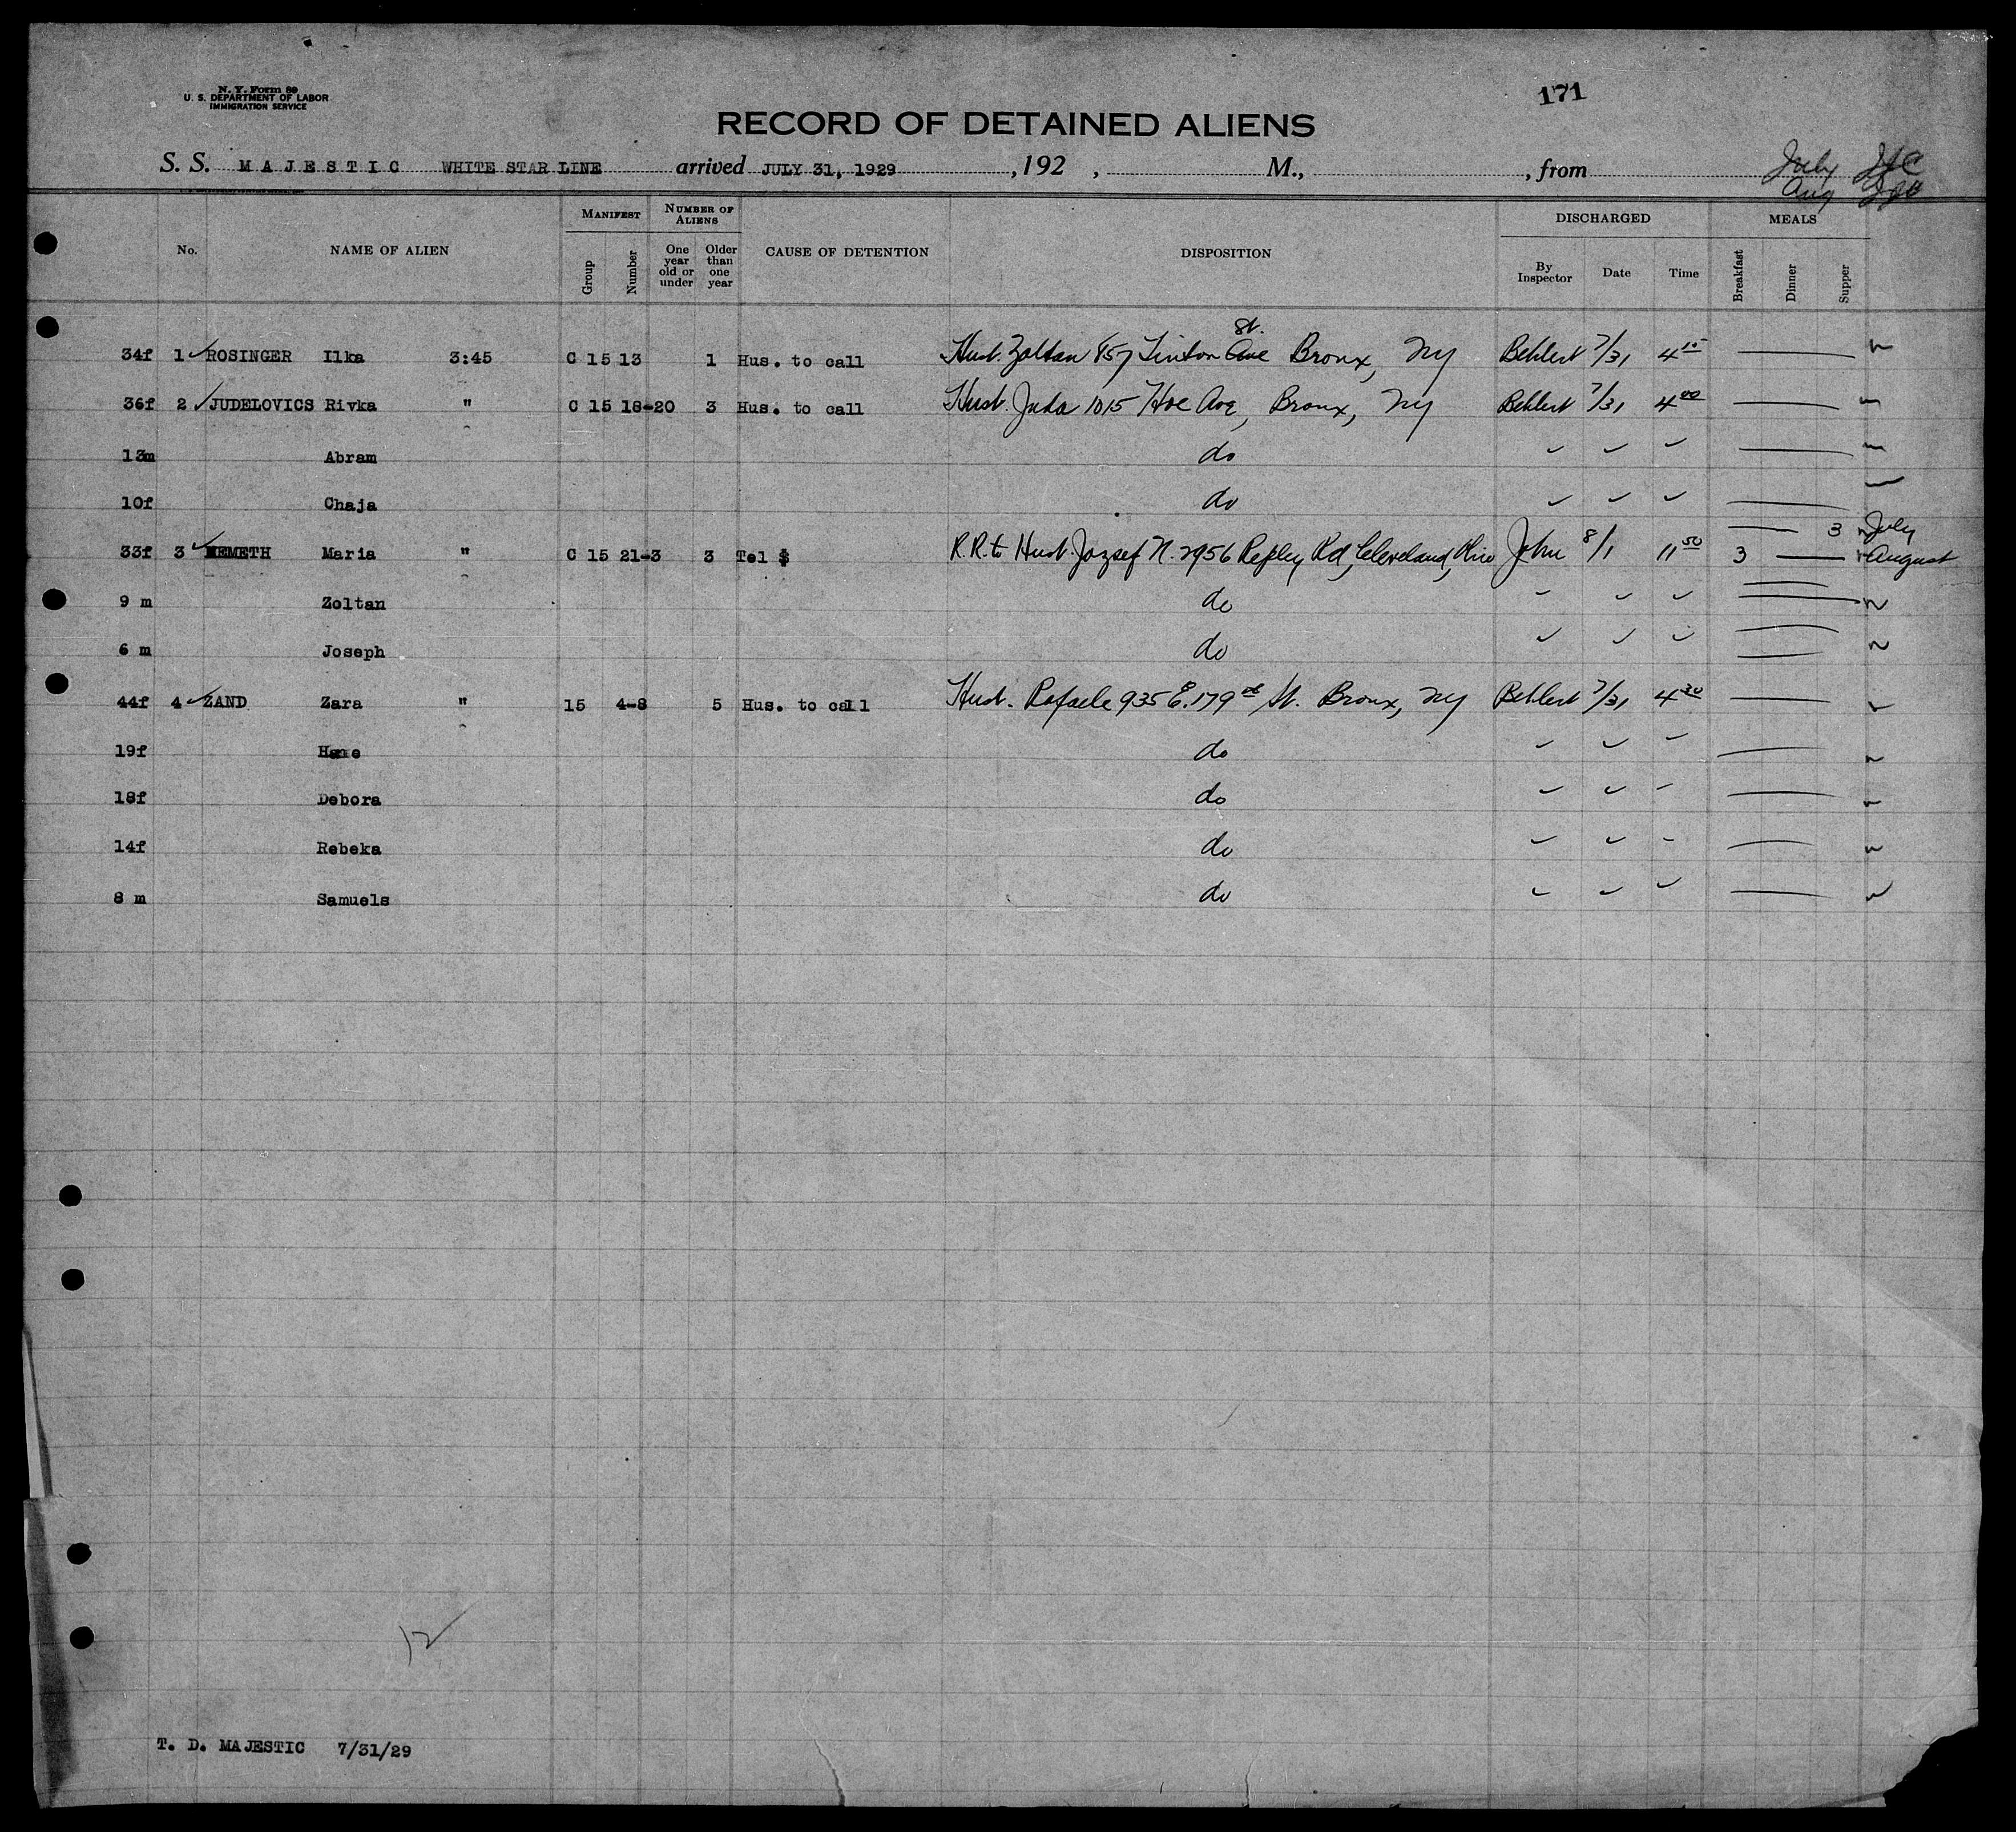 N. Y. Form 89
U. S. DEPARTMENT OF LABOR
IMMIGRATION SERVICE
171
RECORD OF DETAINED ALIENS
S. S. MAJESTIC WHITE STAR LINE arrived JULY 31, 1929, 192 , M., , from
July
Aug
No. NAME OF ALIEN MANIFEST Group Number NUMBER OF ALIENS One year old or under Older than one year CAUSE OF DETENTION DISPOSITION DISCHARGED By Inspector Date Time MEALS Breakfast Dinner Supper
34f 1 ✓ ROSINGER Ilka 3:45 C 15 13 1 Hus. to call Husb. Zoltan 857 Tinton Ave St. Bronx, NY Behlert 7/31 4 15
36f 2 ✓ JUDELOVICS Rivka " C 15 18-20 3 Hus. to call Husb. Juda 1015 Hoe Ave, Bronx, NY Behlert 7/31 4 00
13m Abram do ✓ ✓ ✓
10f Chaja do ✓ ✓ ✓
33f 3 ✓ NEMETH Maria " C 15 21-3 3 Tel $ R.R. to Husb. Jozsef N. 2956 Rd, Cleveland, Ohio John 8/1 11 50 3 July
3 August
9 m Zoltan do ✓ ✓ ✓
6 m Joseph do ✓ ✓ ✓
44f 4 ✓ ZAND Zara " 15 4-8 5 Hus. to call Husb. Rafaele 935 E. 179 St. Bronx, NY Behlert 7/31 4 30
19f do ✓ ✓ ✓
18f Debora do ✓ ✓ ✓
14f Rebeka do ✓ ✓ ✓
8 m Samuels do ✓ ✓ ✓
12
T. D. MAJESTIC 7/31/29